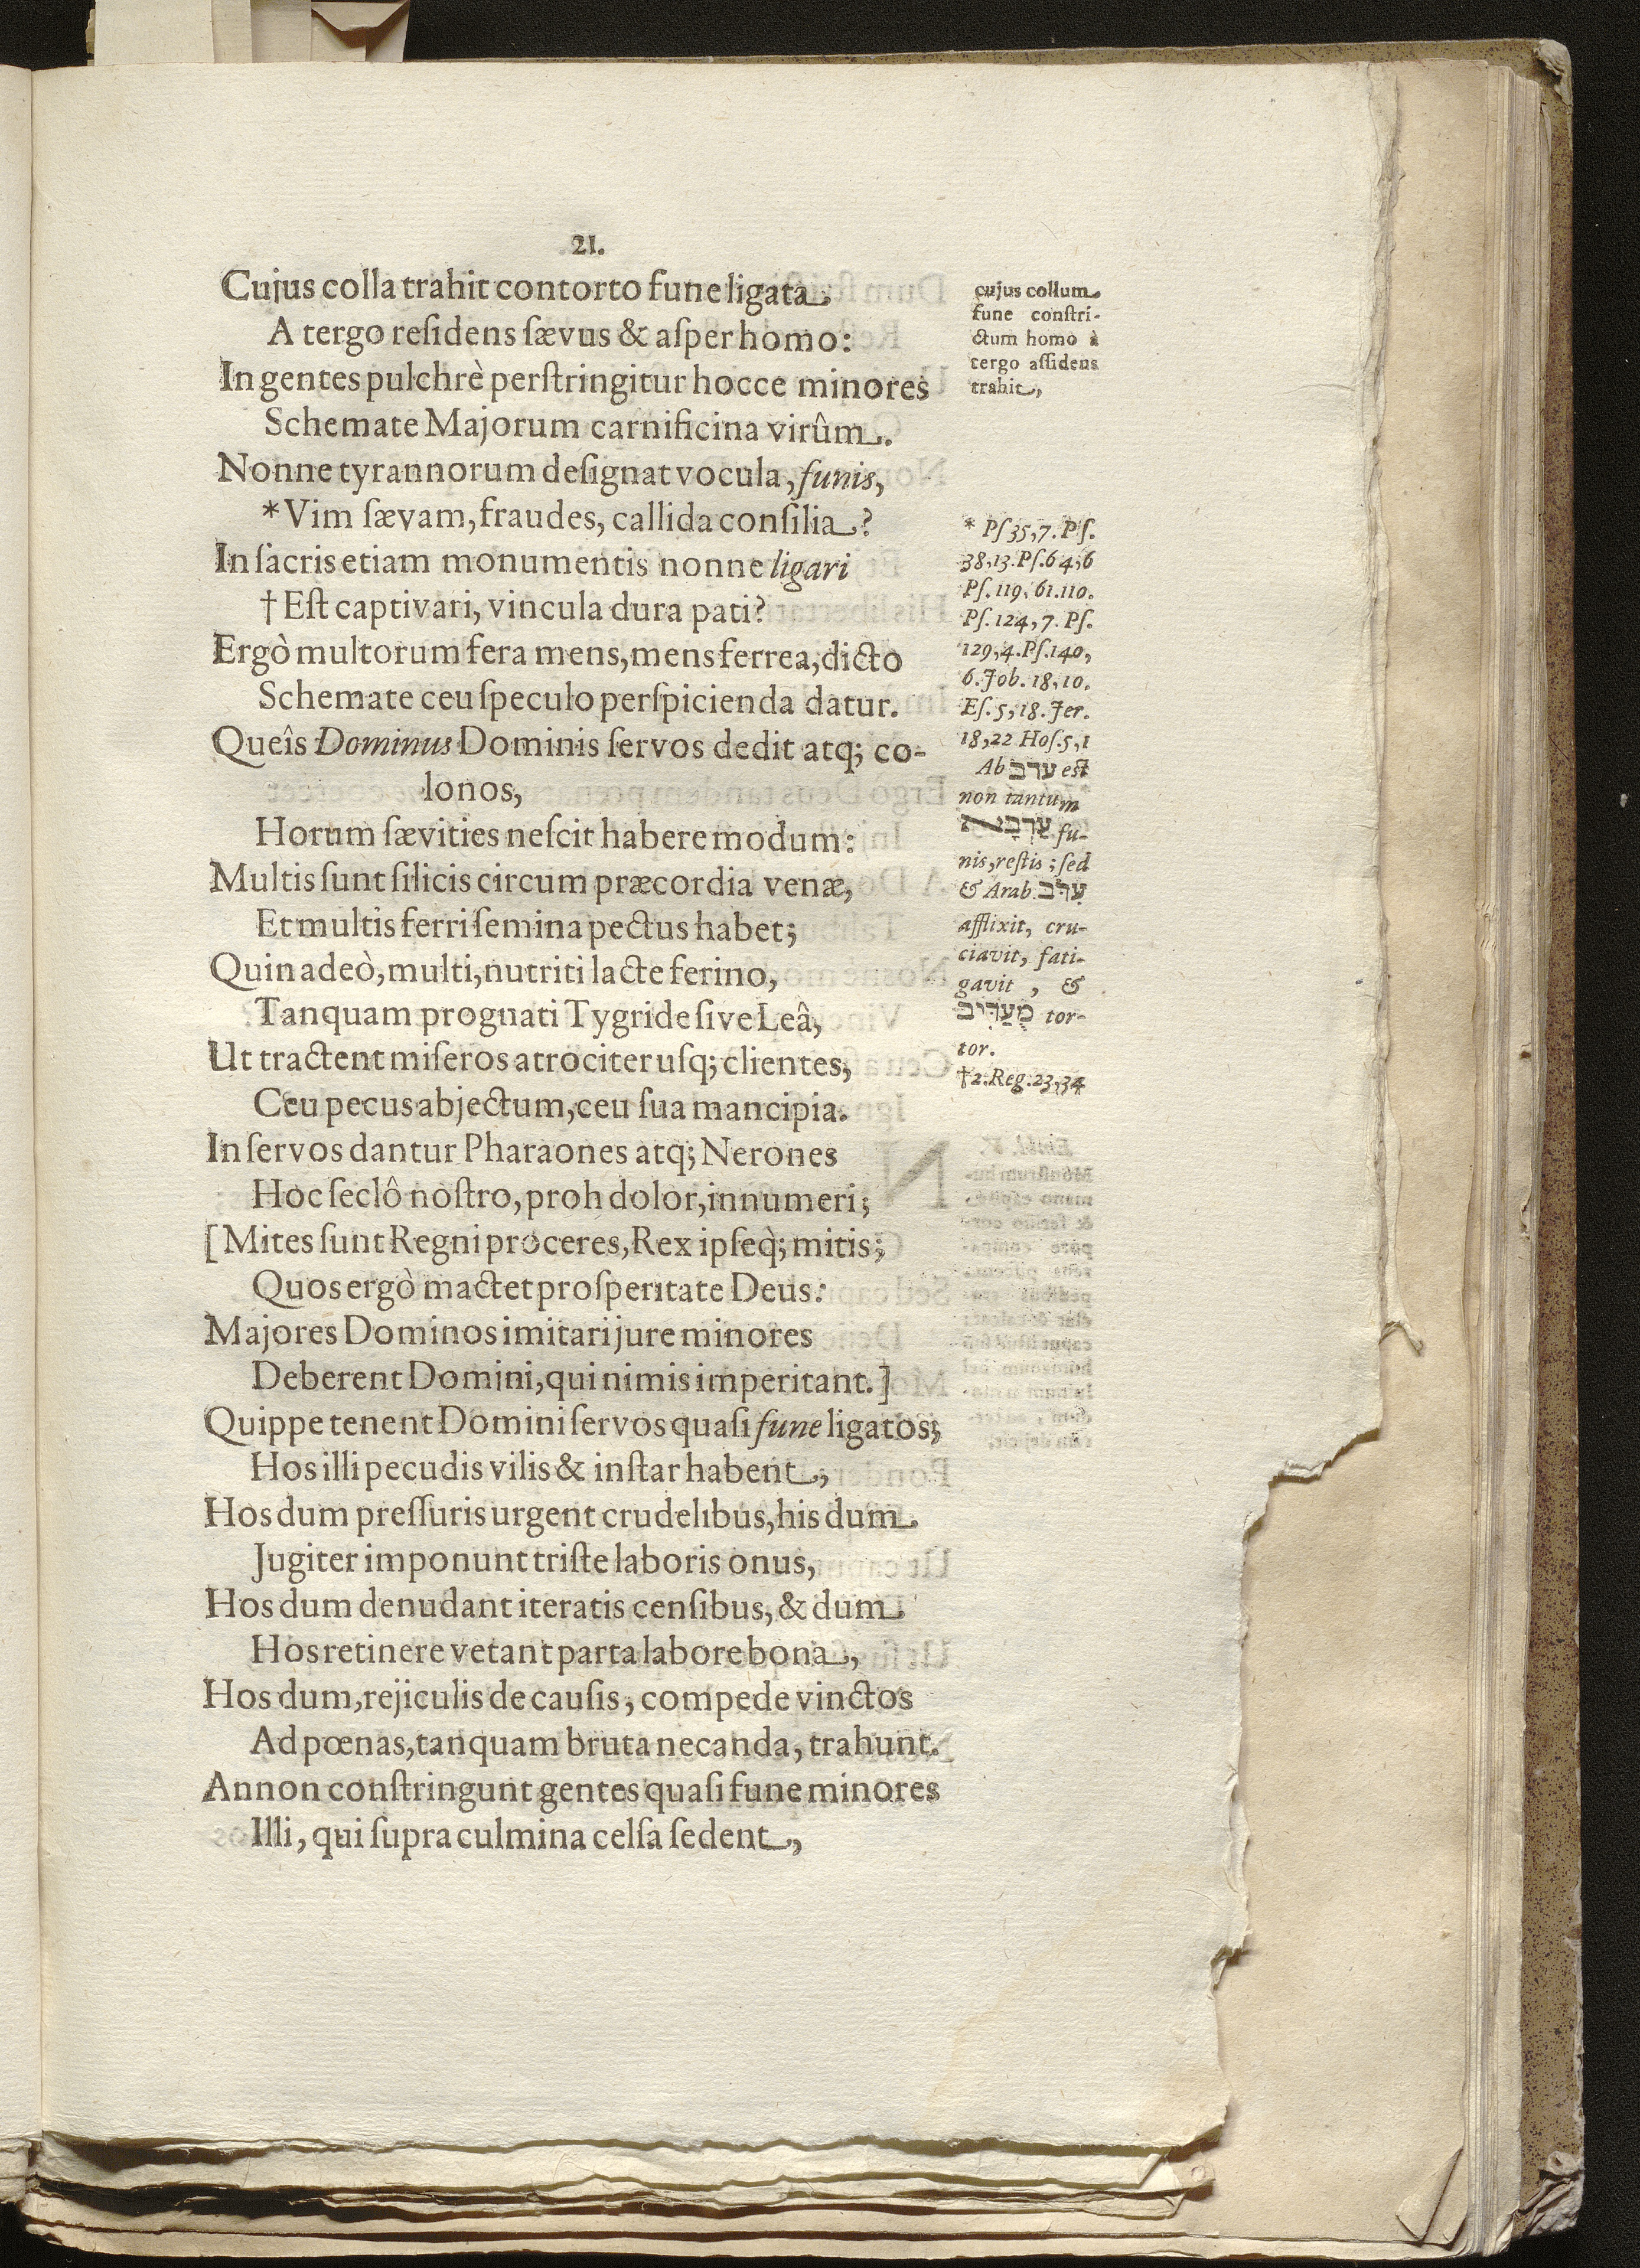 21.
Cujus colla trahit contorto fune ligata.
A tergo reſidens ſævus & aſper homo:
In gentes pulchrè perſtringitur hocce minores
Schemate Majorum carnificina virûm.
Nonne tyrannorum deſignat vocula, funis,
* Vim ſævam, fraudes, callida conſilia?
In ſacris etiam monumentis nonne ligari
† Eſt captivari, vincula dura pati?
Ergò multorum fera mens, mens ferrea, dicto
Schemate ceu ſpeculo perſpicienda datur.
Queîs Dominus Dominis ſervos dedit atq; co-
lonos,
Horum ſævities neſcit habere modum:
Multis ſunt ſilicis circum præcordia venæ,
Et multis ferri ſemina pectus habet;
Quin adeò, multi, nutriti lacte ferino,
Tanquam prognati Tygride ſive Leâ,
Ut tractent miſeros atrociter uſq; clientes,
Ceu pecus abjectum, ceu ſua mancipia.
In ſervos dantur Pharaones atq; Nerones
Hoc ſeclô noſtro, proh dolor, innumeri;
[Mites ſunt Regni proceres, Rex ipſeq; mitis;
Quos ergò mactet proſperitate Deus:
Majores Dominos imitari jure minores
Deberent Domini, qui nimis imperitant.]
Quippe tenent Domini ſervos quaſi fune ligatos;
Hos illi pecudis vilis & inſtar habent,
Hos dum preſſuris urgent crudelibus, his dum
Jugiter imponunt triſte laboris onus,
Hos dum denudant iteratis cenſibus, & dum
Hos retinere vetant parta labore bona,
Hos dum, rejiculis de cauſis, compede vinctos
Ad pœnas, tanquam bruta necanda, trahunt.
Annon conſtringunt gentes quaſi fune minores
Illi, qui ſupra culmina celſa ſedent,
cujus collum
fune conſtri-
ctum homo à
tergo aſſidens
trahit,
* Pſ 35,7. Pſ.
38,13. Pſ. 64,6
Pſ. 119, 61. 110.
Pſ. 124, 7. Pſ.
129,4. Pſ. 140,
6. Job. 18, 10.
Eſ. 5, 18. Jer.
18,22 Hoſ. 5,1
Ab ערב est
non tantum
fu-
nis, reſtis; ſed
& Arab. ערב
afflixit, cru-
ciavit, fati-
gavit, &
tor-
tor.
† 2. Reg. 23,34